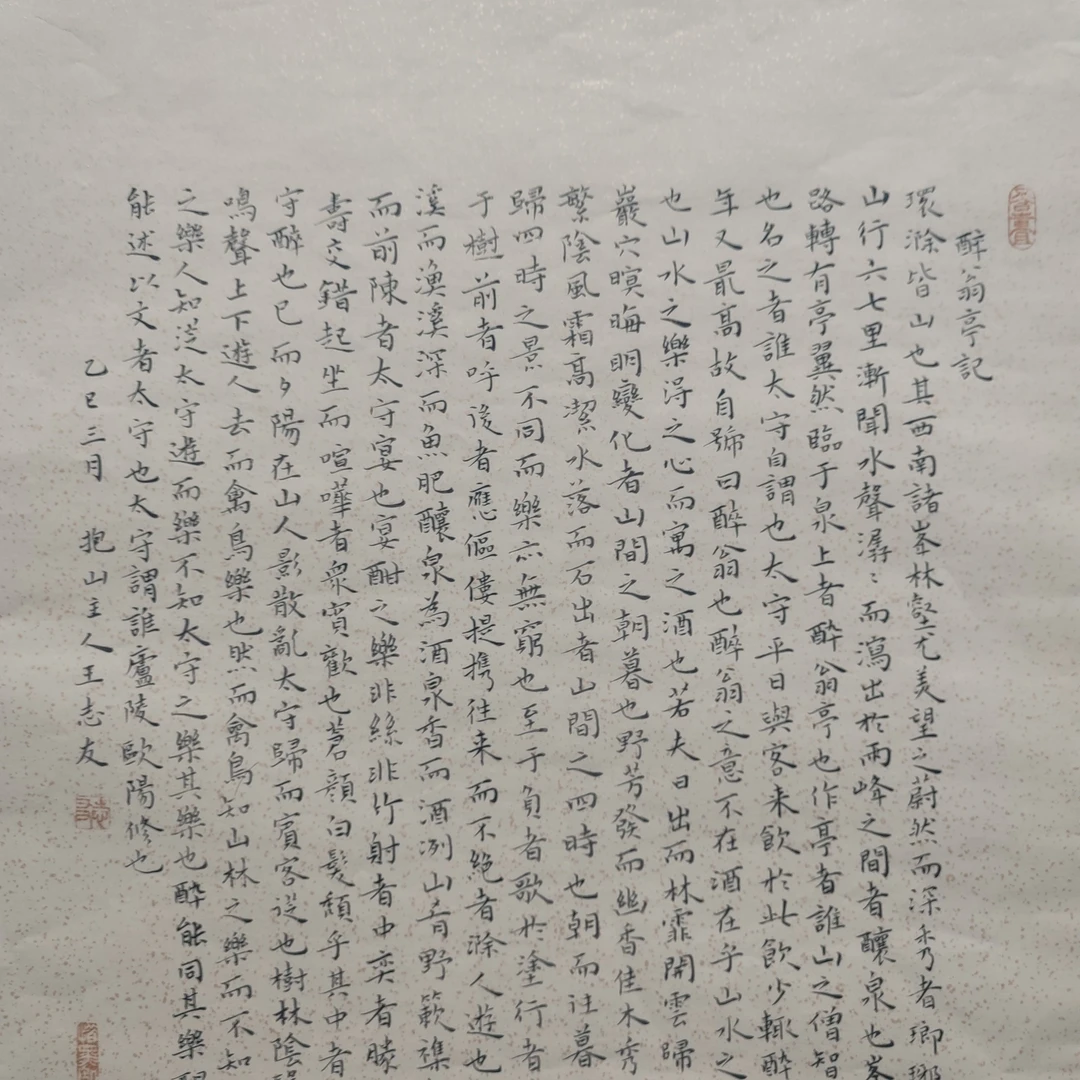 醉翁亭記
環滁皆山也其西南諸峯林壑尤美望之蔚然而深秀者瑯琊
山行六七里漸聞水聲潺〻而瀉出於兩峰之間者釀泉也峯
路轉有亭翼然臨于泉上者醉翁亭也作亭者誰山之僧智
也名之者誰太守自謂也太守平日與客来飲於此飲少輒醉
年又最高故自號曰醉翁也醉翁之意不在酒在乎山水之
也山水之樂得之心而寓之酒也若夫日出而林霏開雲歸
巖穴暝晦明變化者山間之朝暮也野芳發而幽香佳木秀
繁陰風霜高潔水落而石出者山間之四時也朝而往暮
歸四時之景不同而樂亦無窮也至于負者歌於塗行者
于樹前者呼後者應傴僂提携往来而不絶者滁人遊也
溪而漁溪深而魚肥釀泉為酒泉香而酒冽山肴野蔌襍
而前陳者太守宴也宴酣之樂非絲非竹射者中奕者勝
壽交錯起坐而喧嘩者衆賓歡也蒼顔白髮頹乎其中者
守醉也已而夕陽在山人影散亂太守歸而賓客從也樹林陰
鳴聲上下遊人去而禽鳥樂也然而禽鳥知山林之樂而不知
之樂人知從太守遊而樂不知太守之樂其樂也醉能同其樂
能述以文者太守也太守謂誰廬陵歐陽修也
乙巳三月 抱山主人王志友